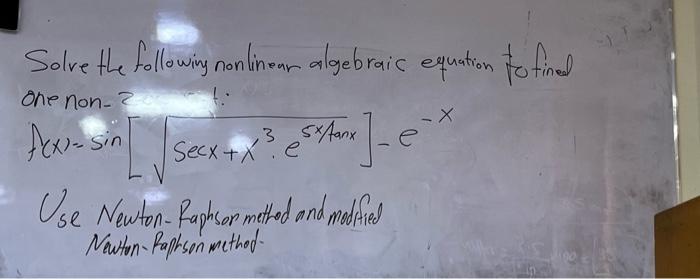 Solve the following nonlinear algebraic equation to fined
one non-
f(x)= sin [ √(secx + x³ . e^(5x/tanx)) ] - e^-x
Use Newton-Raphson method and modified
Newton-Raphson method.